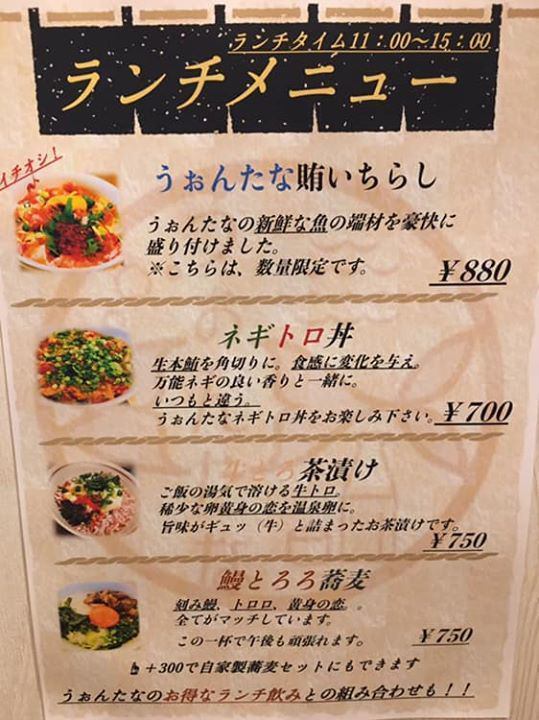 ランチタイム11：00〜15：00
ランチメニュー
イチオシ！
うぉんたな賄いちらし
うぉんたなの新鮮な魚の端材を豪快に
盛り付けました。
※こちらは、数量限定です。
￥880
ネギトロ丼
生本鮪を角切りに。食感に変化を与え。
万能ネギの良い香りと一緒に。
いつもと違う。
うぉんたなネギトロ丼をお楽しみ下さい。
￥700
牛とろ茶漬け
ご飯の湯気で溶ける牛トロ。
稀少な卵黄身の恋を温泉卵に。
旨味がギュッ（牛）と詰まったお茶漬けです。
￥750
鰻とろろ蕎麦
刻み鰻、トロロ、黄身の恋。。
全てがマッチしています。
この一杯で午後も頑張れます。
￥750
☝＋300で自家製蕎麦セットにもできます
うぉんたなのお得なランチ飲みとの組み合わせも！！